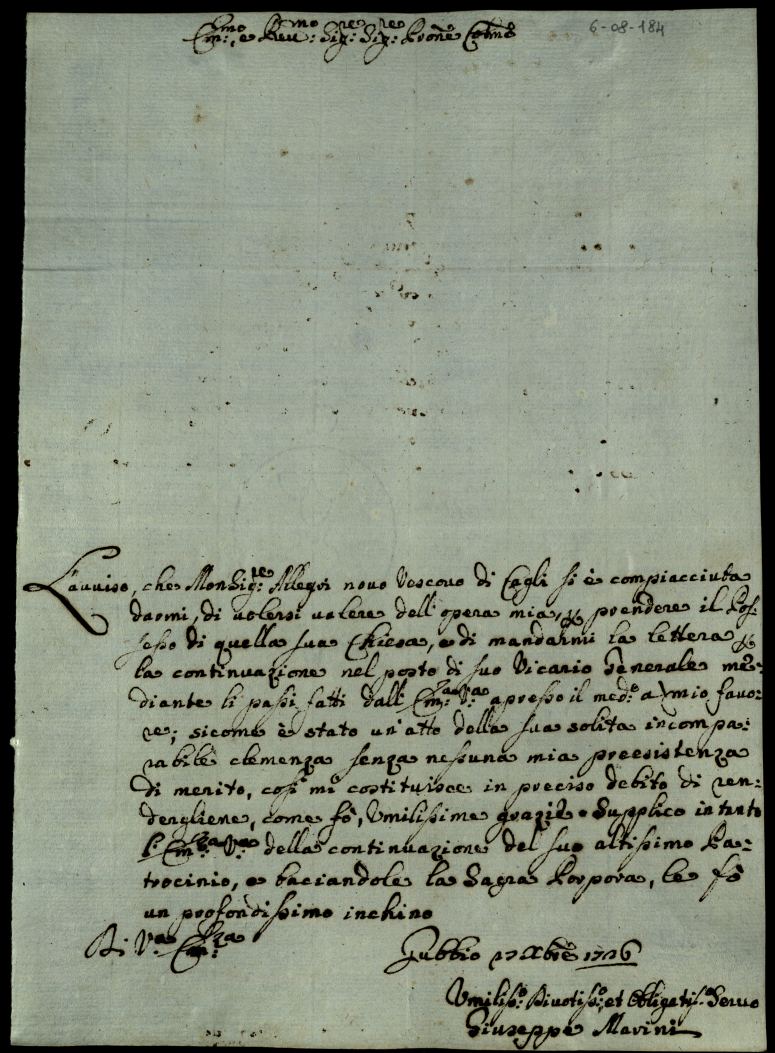 Em:mo, e Reu:mo Sig:re Sig:re Prone Colmo
6-08-184
L'auuiso, che Monsig:re Allegri nouo Vescouo di Cagli si è compiacciuta
darmi, di uolersi ualere dell'opera mia, prendere il Pos:
sesso di quella sua Chiesa, e di mandarmi la lettera
la continuazione nel posto di suo Vicario Generale me:
diante li passi fatti dall' Em:za V:ra apresso il med:o a mio fauo:
re; sicome è stato un'atto della sua solita incompa:
rabile clemenza senza nessuna mia preesistenza
di merito, così mi costituisce in preciso debito di ren:
dergliene, come fò, Vmilissime grazie. Supplico intanto
l' Em:za V:ra della continuazione del suo altissimo Pa:
trocinio, e baciandole la Sagra Porpora, le fò
un profondissimo inchino
Di V:ra Em:za
Gubbio 17 Xbre 1726
Vmiliss:o Diuotiss:o, et Obligatis:o Seruo
Giuseppe Marini